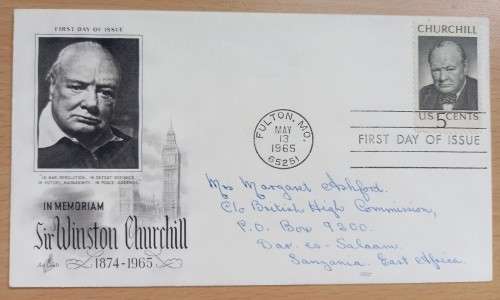 FIRST DAY OF ISSUE
IN WAR: RESOLUTION, IN DEFEAT: DEFIANCE,
IN VICTORY: MAGNANIMITY, IN PEACE: GOODWILL
IN MEMORIAM
Sir Winston Churchill
1874-1965
Art Craft
CHURCHILL
U.S. 5 CENTS
FULTON, MO.
MAY
13
1965
65251
FIRST DAY OF ISSUE
Mrs Margaret Ashford.
C/o British High Commission,
P.O. Box 9200.
Dar-es-Salaam.
Tanzania. East Africa.